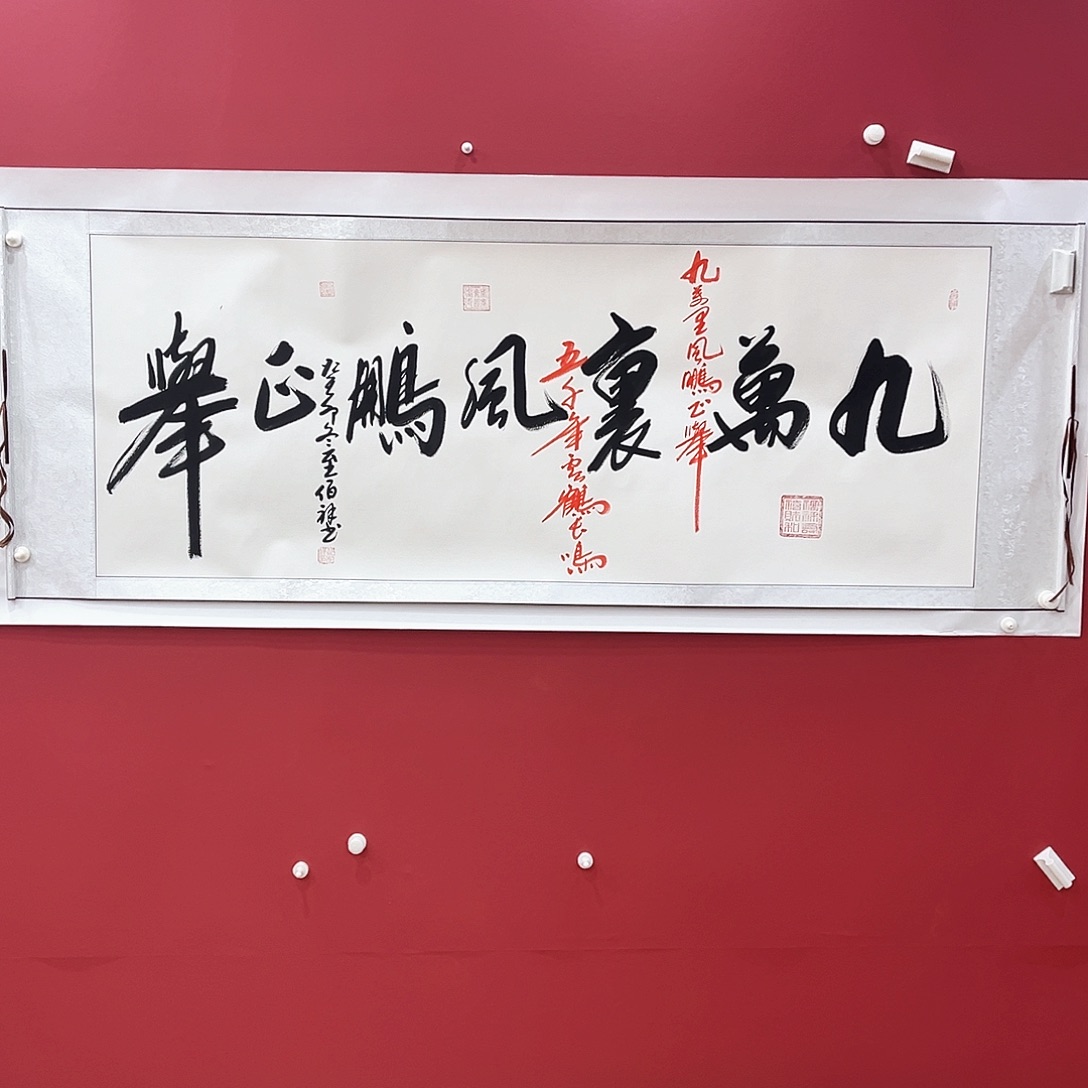 九萬裏風鵬正舉
九萬里風鵬正舉
五千年雲鶴長鳴
冬至伯祥書